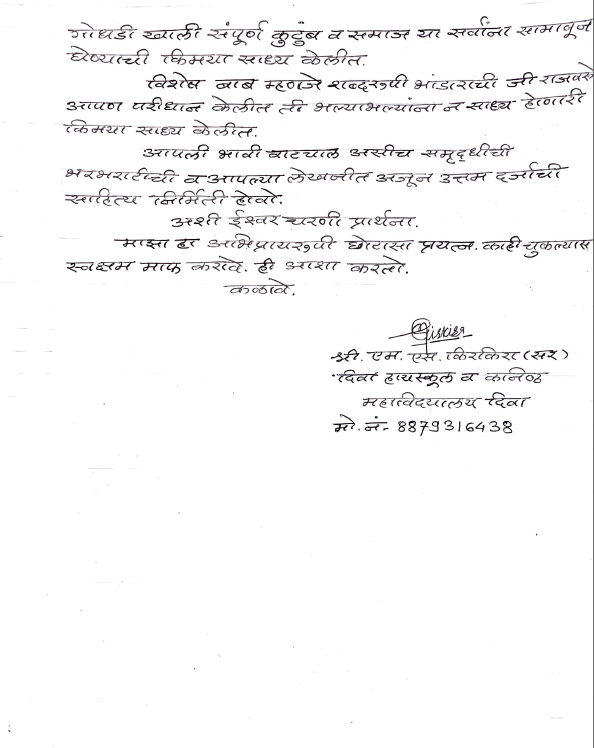 गोधडी खाली संपूर्ण कुटुंब व समाज या सर्वांना सामावून
घेण्याची किमया साध्य केलीत.
विशेष बाब म्हणजे शब्दरूपी भांडाराची जी राजवस्त्रे
आपण परीधान केलीत ती भल्याभल्यांना न साध्य होणारी
किमया साध्य केलीत.
आपली भावी वाटचाल अशीच समृद्धीची
भरभराटीची व आपल्या लेखणीत अजून उत्तम दर्जाची
साहित्य निर्मिती होवो.
अशी ईश्वर चरणी प्रार्थना.
माझा हा अभिप्रायरूपी छोटासा प्रयत्न. काही चुकल्यास
स्वक्षम माफ करावे. ही आशा करतो.
कळावे.
श्री. एम. एस. किरकिरा (सर)
दिवा हायस्कूल व कनिष्ठ
महाविद्यालय दिवा
मो. नं- 8879316438